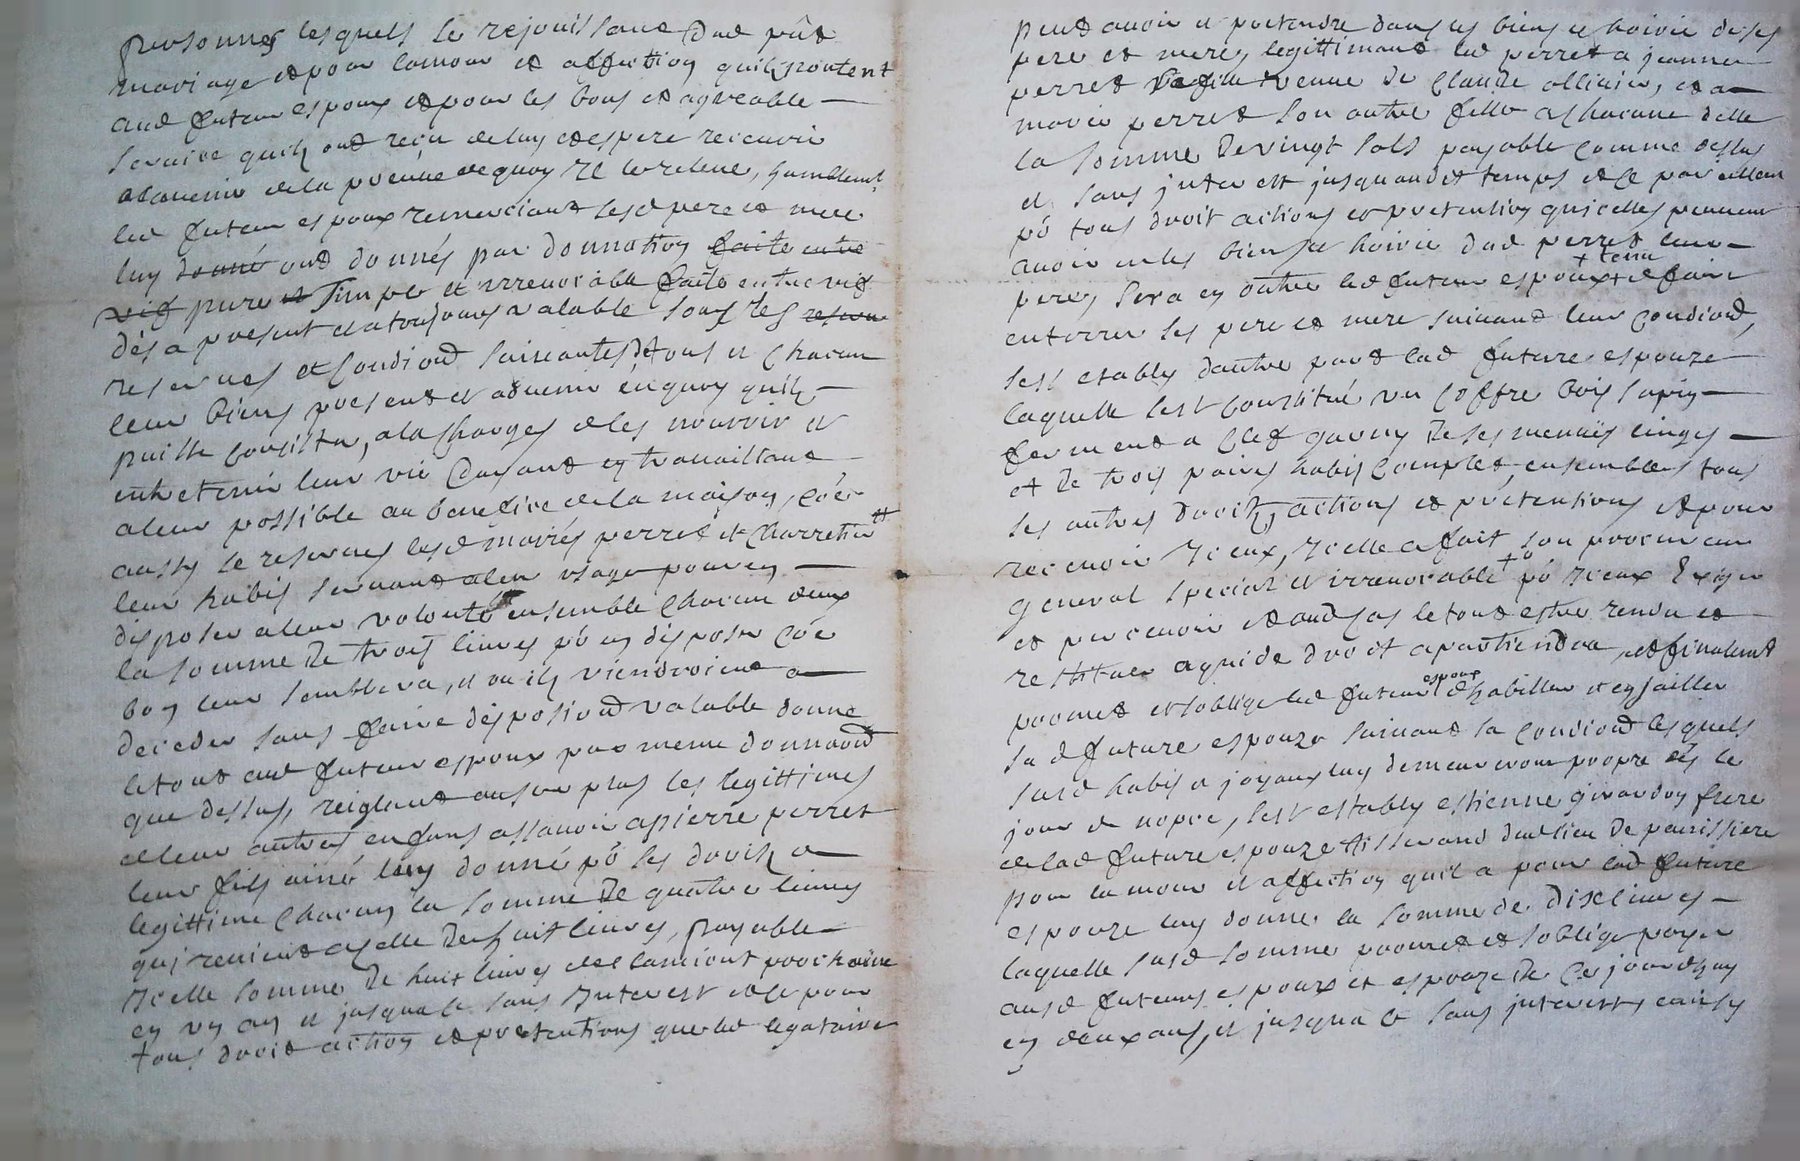 personnes lesquels se rejouissant dud pñt
mariage et pour lamour et affection quilz portent
aud futeur espoux et pour les bons et agreable
service quilz ont reçu de luy et espere recevoir
aladvenir de la preuve de quoy il le releve, humblemt
led futeur espoux remerciant sesd pere et mere
luy donné ont donnés par donnation faite entre
vifs pure et simple et irrevocable faite entre vifs
dés a present et a tousjours valable sous les reserve
reserves et condiond suivantes de tous et chacun
leur biens present et advenir en quoy quilz
puisse consister, a la charges de les nourrir et
entretenir leur vie durant en travaillant
a leur possible au benefice de la maison, côe
aussy se reserves lesd mariés perret et Charretier
leur habis servant a leur usage pour en
disposer a leur volonté ensemble chacun deux
la somme de trois livres pô en disposer côe
bon leur semblera, et ou ilz viendroient a
deceder sans faire disposiond valable donne
le tout aud futeur espoux par meme donnaond
que dessus, reiglant en outre plus les legittimes
de leur autres enfans assavoir a pierre perret
leur fils ainé luy donné pô ses droitz a
legittime chacun la somme de quatre livres
qui revient a celle de huit livres, payable
icelle somme de huit livres prochaine
en un an et jusqua ce sans interest et ce pour
tous droit action et pretentions que led legataire
peut avoir et pretendre dans les biens et hoirie de ses
pere et mere, legittimant led perret a jeanne
perret sa fille veuve de Claude alliaire, et a
marie perret son autre fille a chacune delle
la somme de vingt sols payable comme dessus
et sans interest jusquaudt temps et ce pareillement
pô tous droit actions et pretention quicelles peuvent
avoir en les biens et hoirie dud perret leur
pere, sera en outre led futeur espoux + tenu de faire
enterrer ses pere et mere suivant leur condiond,
sest etably dautre part lad future espouze
laquelle sest constitué un coffre bois sapin
fermant a clef garny de ses menus linges
et de trois paires habis complet ensembles tous
ses autres droitz actions et prétentions et pour
recevoir iceux, icelle a fait son procureur
general special et irrevocable + pô iceux exiger
et percevoir et aud cas le tout estre rendu et
restituer a qui de droit apartiendra, et finalemt
promet et soblige led futeur espoux dhabiller et enjoailler
sad future espouze suivant sa condiond lesquels
susd habis et joyaux luy demeureront propre dés le
jour de nopce, sest estably estienne girardon frere
de lad future espouze tisserand dud lieu de panissiere
pour lamour et affection quil a pour lad future
espouze luy donne la somme de dix livres
laquelle susd somme promet et soblige payer
ausd futeurs espoux et espouze de ce jourdhuy
en deux ans, et jusqua ce sans interests cainsy